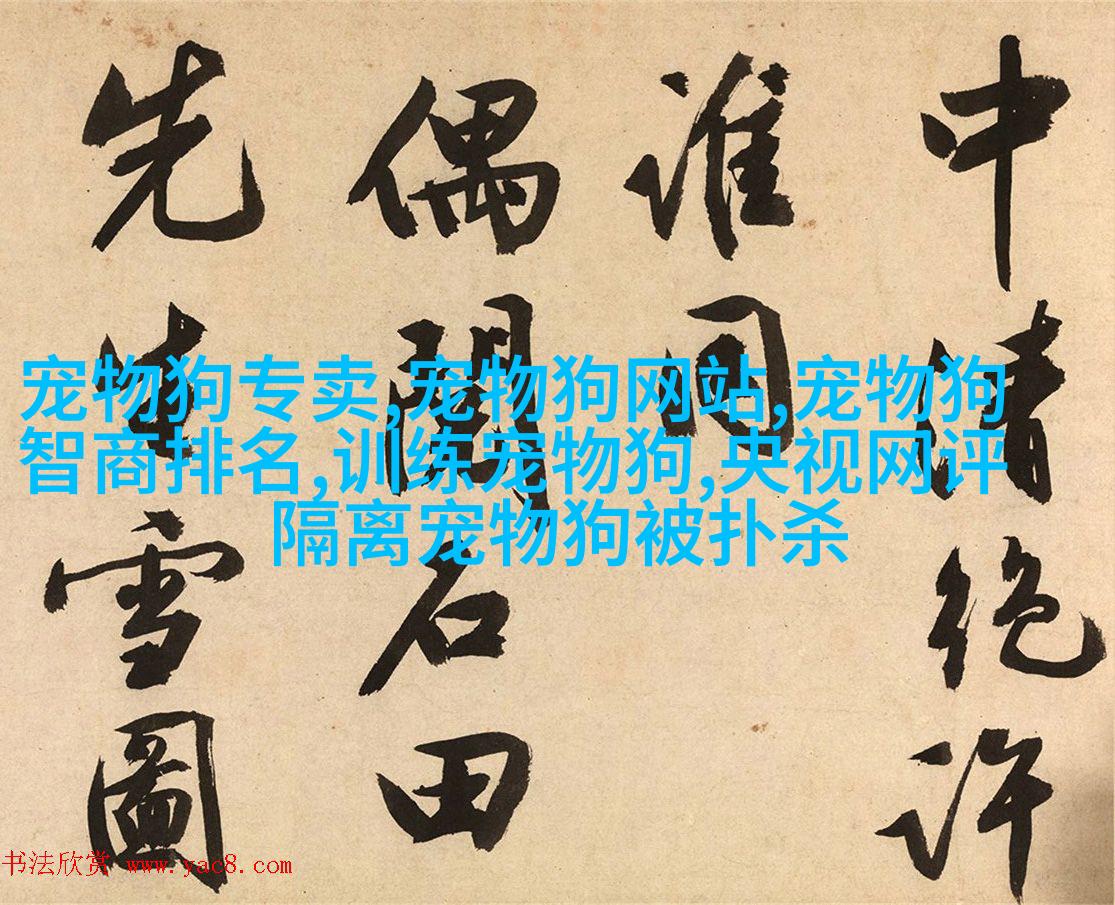 中清絶許
誰同
偶閱石田
先生雪圖
宠物狗专卖,宠物狗网站,宠物狗
智商排名,训练宠物狗,央视网评
隔离宠物狗被扑杀
书法欣赏 www.yac8.com